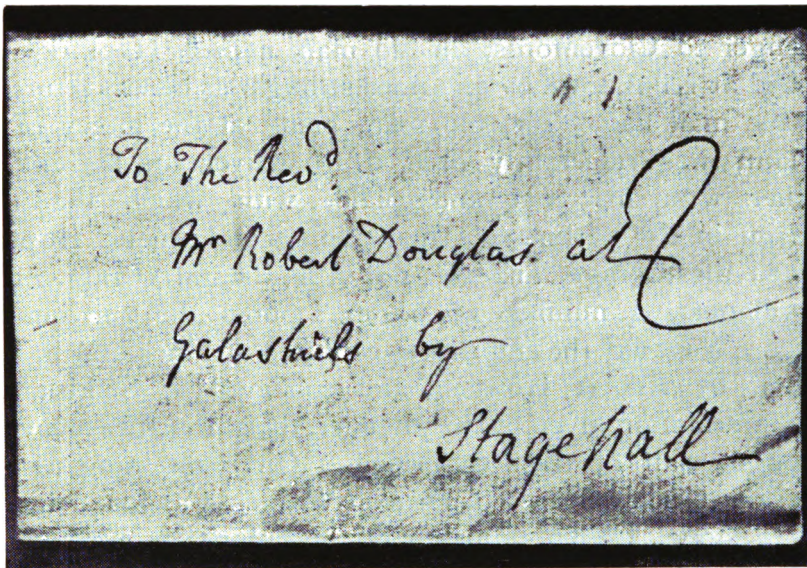 To The Revd.
Mr Robert Douglas. at
Galashiels by
Stagehall
2